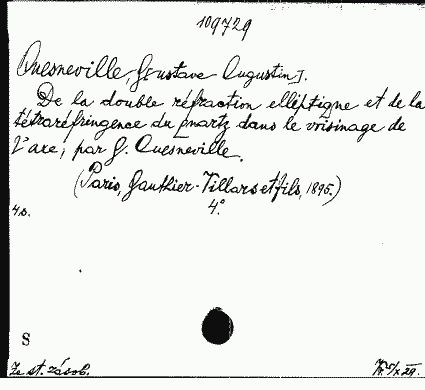 109729
Quesneville, G[ustave Augustin].
De la double réfraction elléptigne et de la
tétraréfringence du quartz dans le voisinage de
l'axe, par G. Quesneville.
(Paris, Gauthier-Villars et fils, 1895.)
4s. 4°
S
Ze st. zásob.